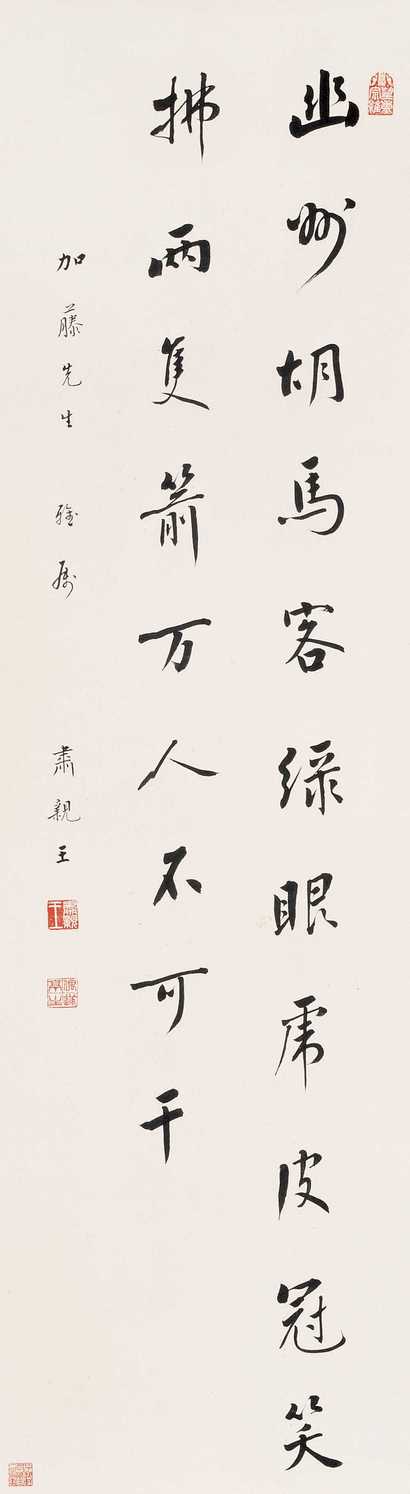 幽州胡馬客綠眼虎皮冠笑
拂兩隻箭万人不可干
加藤先生 雅屬
肅親王